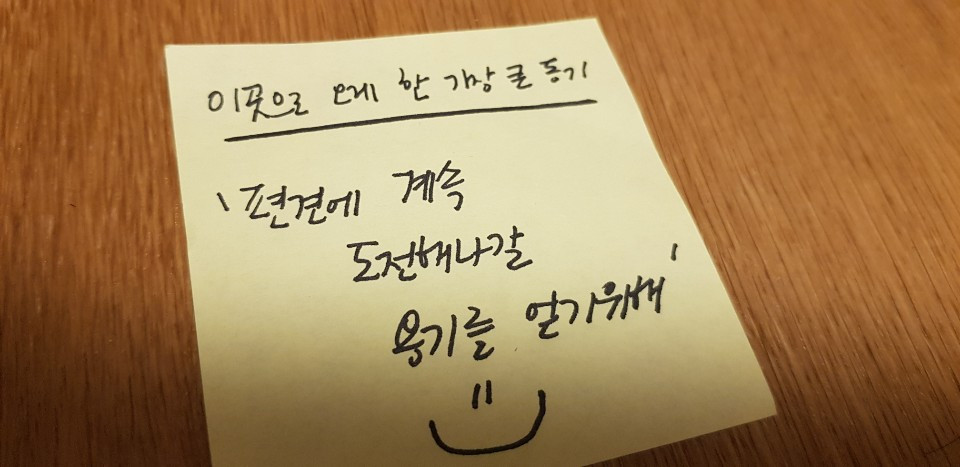 이곳으로 오게 한 가장 큰 동기
'편견에 계속
도전해나갈
용기를 얻기위해'